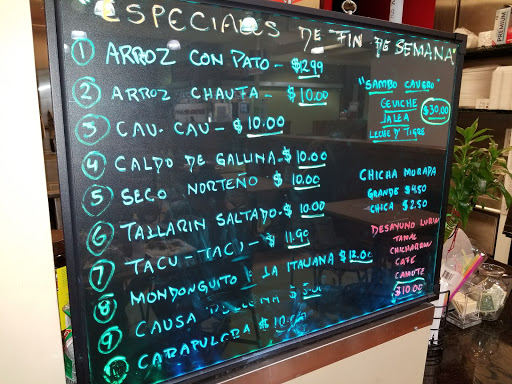 "ESPECIALES DE FIN DE SEMANA"
1 ARROZ CON PATO - $12.99
2 ARROZ CHAUFA - $10.00
3 CAU-CAU - $10.00
4 CALDO DE GALLINA - $10.00
5 SECO NORTEÑO $10.00
6 TALLARIN SALTADO - $10.00
7 TACU-TACU - 11.90
8 MONDONGUITO A LA ITALIANA $12.00
9 CAUSA RELLENA $
CARAPULCRA $10.00
"SAMBO CAVERO"
CEVICHE
JALEA
LECHE D' TIGRE
$30.00
CHICHA MORADA
GRANDE $4.50
CHICA $2.50
DESAYUNO LURIN
TAMAL
CHICHARRON
CAFE
CAMOTE
$10.00
PREMIUM